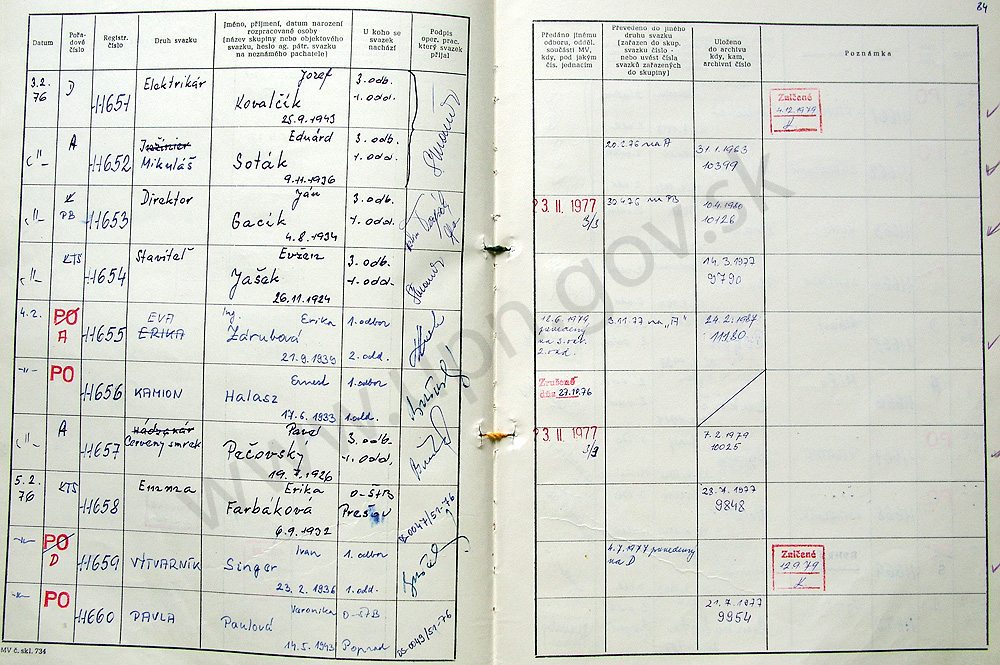 84
Datum
Pořa-
dové
číslo
Registr.
číslo
Druh svazku
Jméno, příjmení, datum narození
rozpracované osoby
(název skupiny nebo objektového
svazku, heslo ag. pátr. svazku
na neznámého pachatele)
U koho se
svazek
nachází
Podpis
oper. prac.
který svazek
přijal
Předáno jinému
odboru, odděl.
součásti MV,
kdy, pod jakým
čís. jednacím
Převedeno do jiného
druhu svazku
(zařazen do skup.
svazku číslo -
nebo uvést čísla
svazků zařazených
do skupiny)
Uloženo
do archivu
kdy, kam,
archivní číslo
Poznámka
3.2.
76
D
11651
Elektrikár
Jozef
Kovalčík
25.9.1943
3. odb.
1. odd.
Zničené
4.12.1979
A
11652
Mikuláš
Eduárd
Soták
9.11.1936
3. odb.
1. odd.
20.2.76 na A
31.1.1983
10399
PB
11653
Direktor
Ján
Gacík
4.8.1934
3. odb.
1. odd.
23. II. 1977
30.4.76 na PB
10.4.1980
10126
KTS
11654
Staviteľ
Evžen
Jašek
26.11.1924
3. odb.
1. odd.
14.3.1977
9790
4.2.
PO
A
11655
EVA
ERIKA
Ing. Erika
Zdrubová
21.9.1939
1. odbor
2. odd.
12.6.1979
3.11.77 na "A"
24.2.1987
11980
PO
11656
KAMION
Ernest
Halasz
17.6.1933
1. odbor
1. odd.
Zrušené
dňa 27.10.76
A
11657
Červený smrek
Pavel
Pečovský
19.7.1926
3. odb.
1. odd.
23. II. 1977
7.2.1979
10025
5.2.
76
KTS
11658
Emma
Erika
Farbáková
6.9.1932
O-ŠtB
Prešov
9848
PO
D
11659
VÝTVARNÍK
Ivan
Singer
23.2.1936
1. odbor
1. odd.
4.7.1977 prevedený
na D
Zničené
12 9 79
PO
11660
PAVLA
Veronika
Paulová
14.5.1943
O-ŠTB
Poprad
OS-0049/51-76
21.7.1977
9954
MV č. skl. 734
www.upn.gov.sk